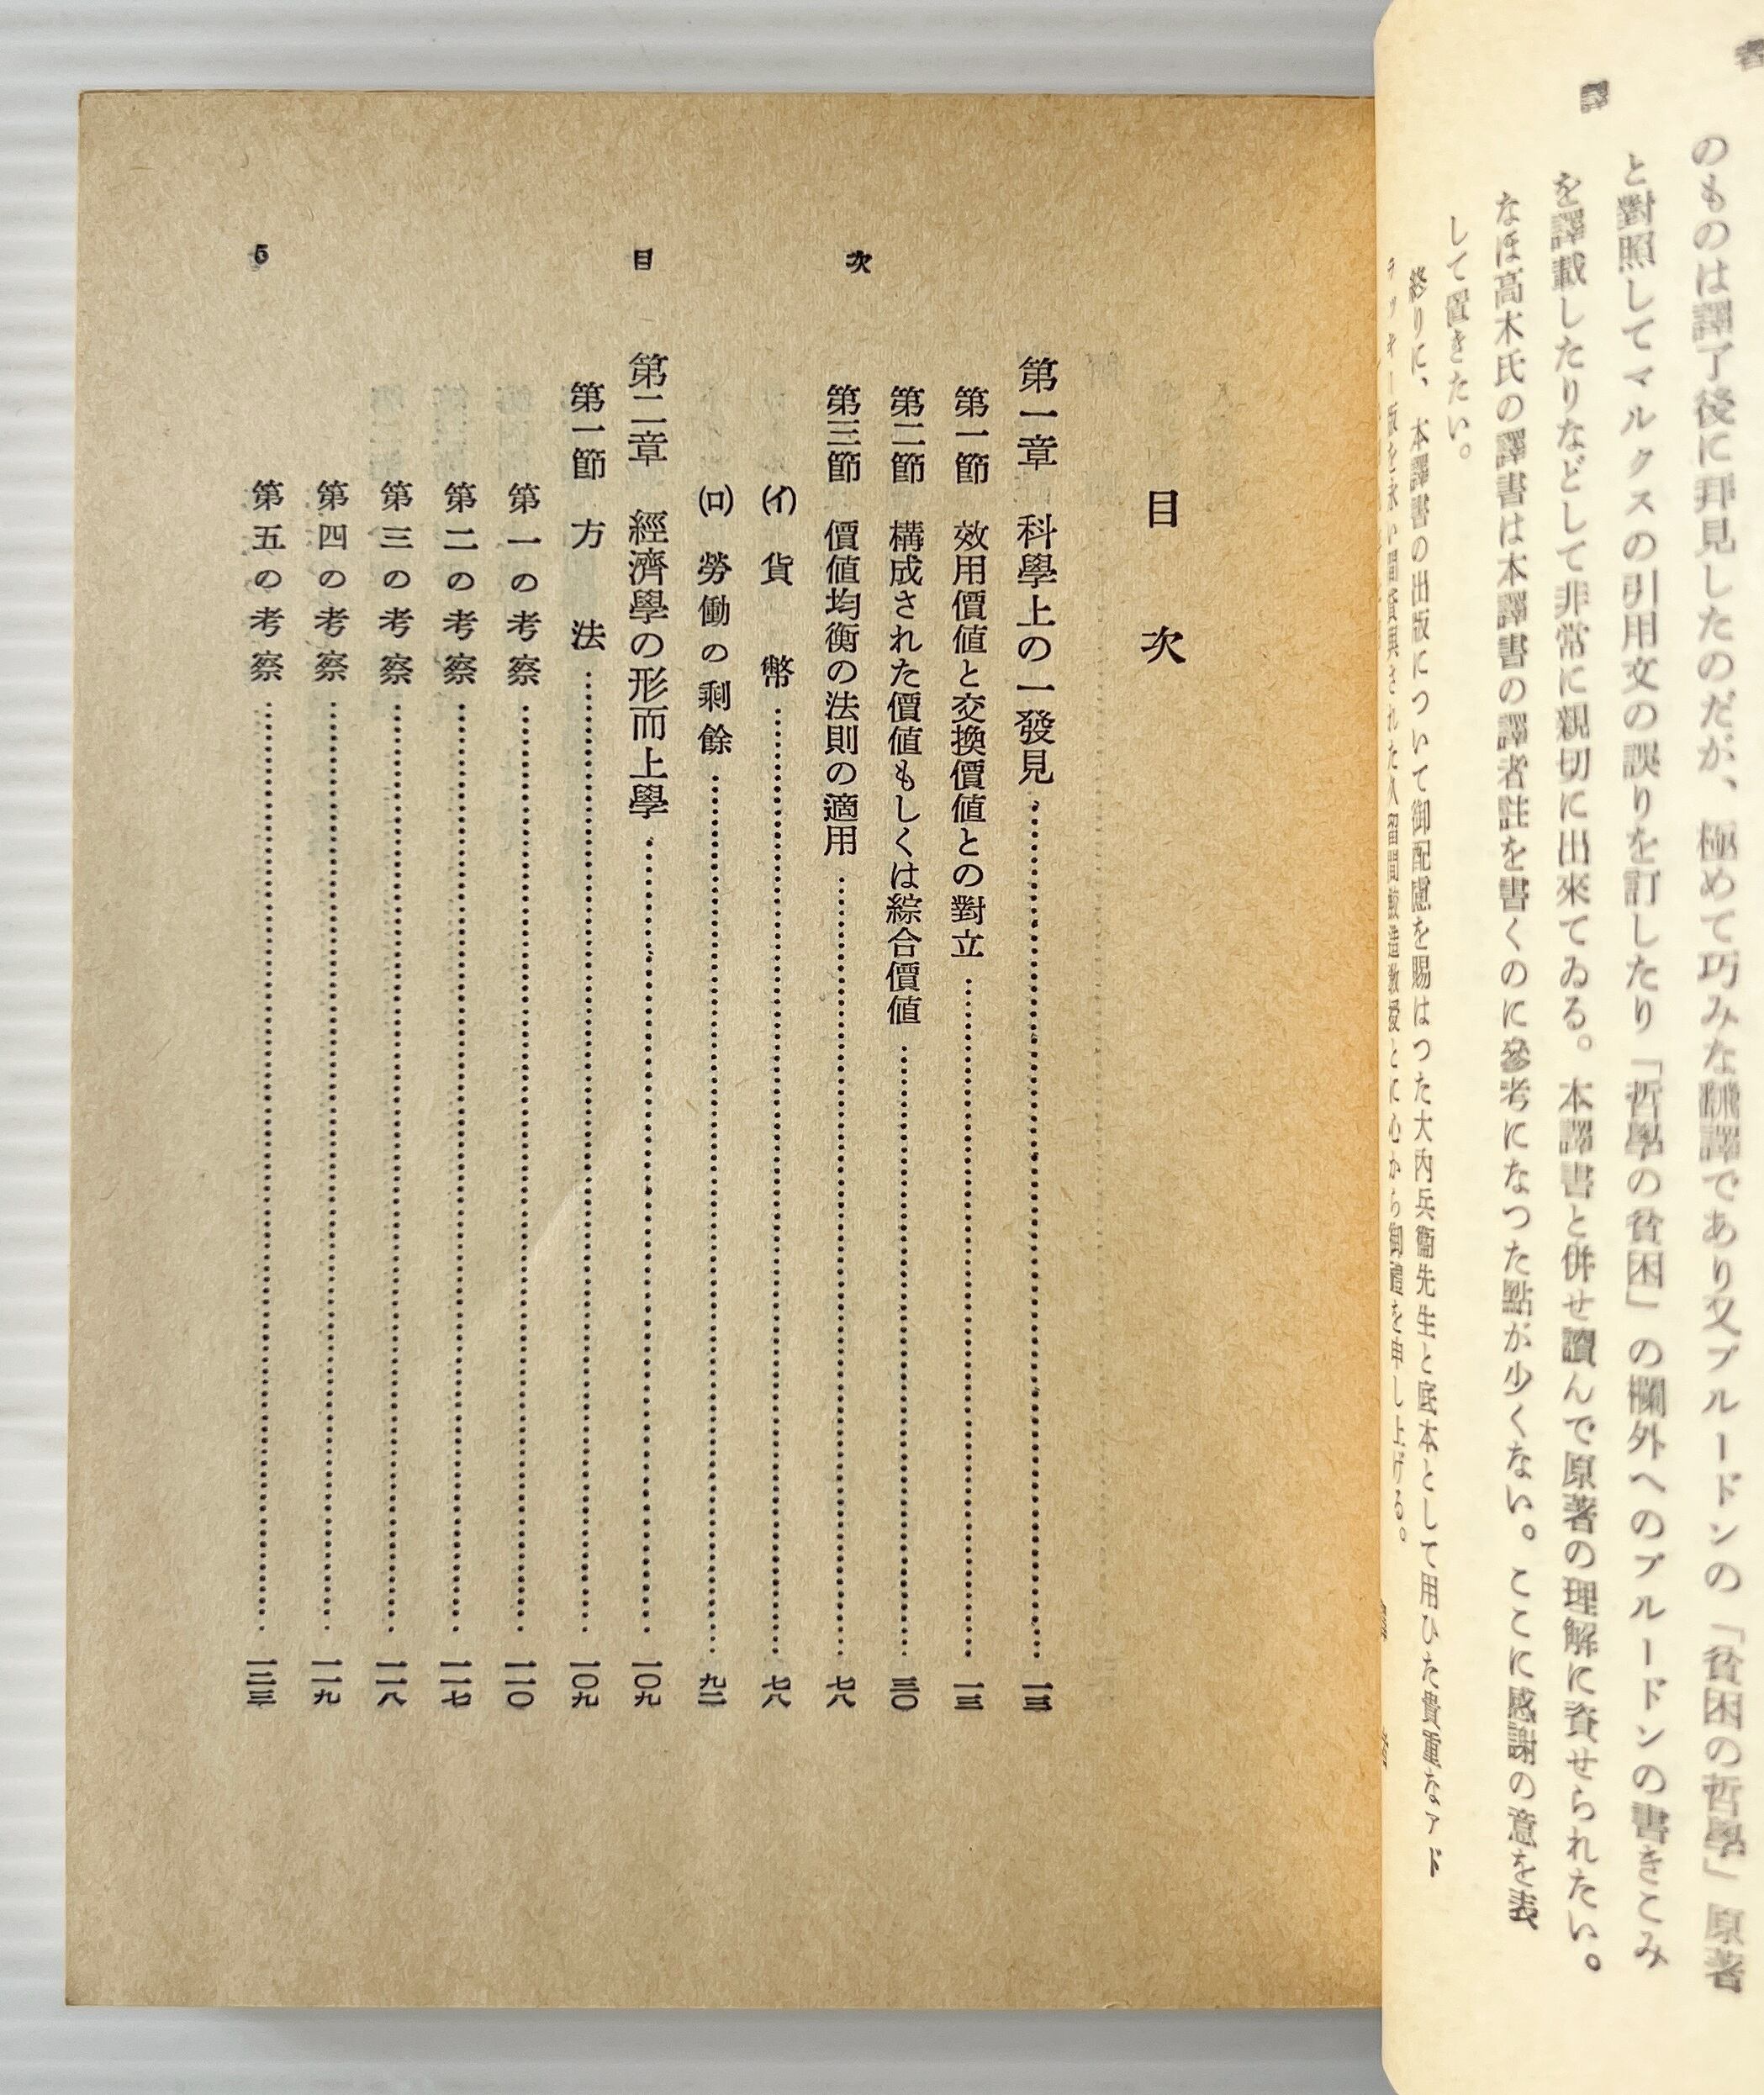 譯 者
のものは譯了後に拜見したのだが、極めて巧みな飜譯であり又プルードンの「貧困の哲學」原著
と對照してマルクスの引用文の誤りを訂したり「哲學の貧困」の欄外へのプルードンの書きこみ
を譯載したりなどして非常に親切に出來てゐる。本譯書と併せ讀んで原著の理解に資せられたい。
なほ高木氏の譯書は本譯書の譯者註を書くのに參考になつた點が少くない。ここに感謝の意を表
して置きたい。
終りに、本譯書の出版について御配慮を賜はつた大内兵衞先生と底本として用ひた貴重なアド
ラツキー版を永い間貸與された久留間鮫造教授とに心から御禮を申し上げる。
5 目 次
目 次
第一章 科學上の一發見……一三
第一節 效用價値と交換價値との對立……一三
第二節 構成された價値もしくは綜合價値……三〇
第三節 價値均衡の法則の適用……七八
(イ) 貨幣……七八
(ロ) 勞働の剩餘……九二
第二章 經濟學の形而上學……一〇九
第一節 方法……一〇九
第一の考察……一一〇
第二の考察……一一七
第三の考察……一一八
第四の考察……一一九
第五の考察……一二三